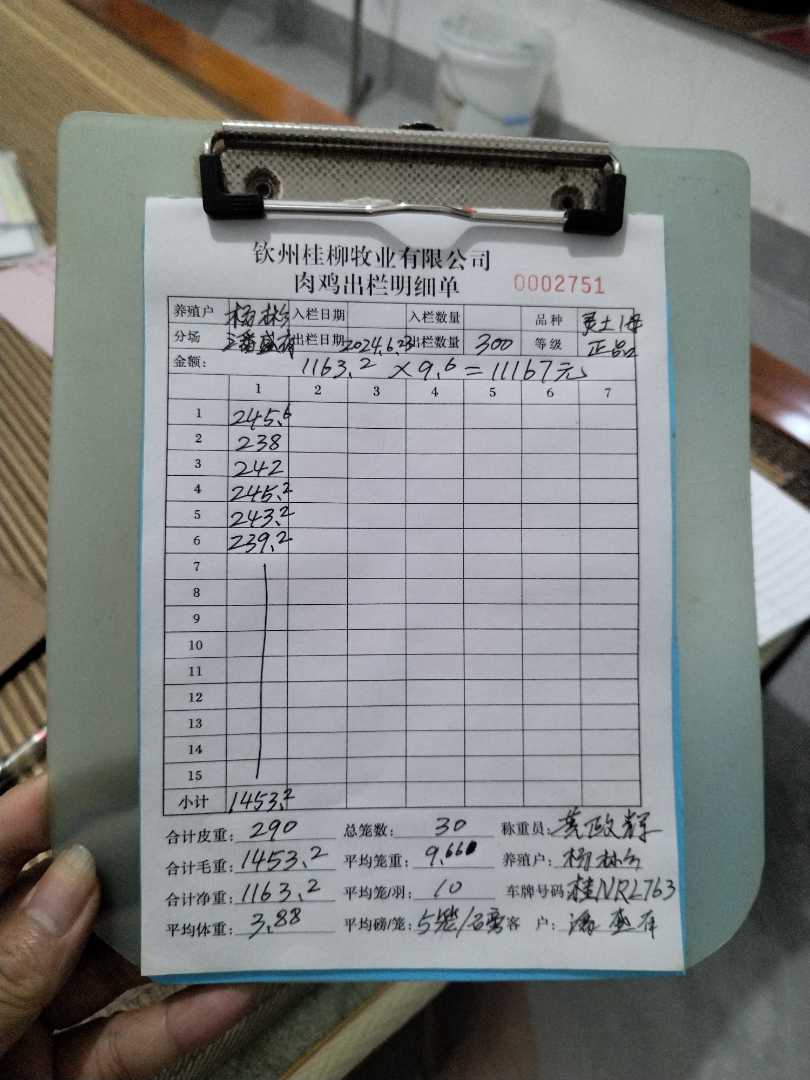 钦州桂柳牧业有限公司
肉鸡出栏明细单 0002751
养殖户 杨彬 入栏日期 入栏数量 品种 灵土1号
分场 潘盛 出栏日期 2024.6.23 出栏数量 300 等级 正品
金额: 1163.2 × 9.6 = 11167元
1 2 3 4 5 6 7
1 245.6
2 238
3 242
4 245.2
5 243.2
6 239.2
7
8
9
10
11
12
13
14
15
小计 1453.2
合计皮重: 290 总笼数: 30 称重员: 黄政辉
合计毛重: 1453.2 平均笼重: 9.666 养殖户: 杨彬
合计净重: 1163.2 平均笼/羽: 10 车牌号码 桂NRL763
平均体重: 3.88 平均磅/笼: 5笼/ 客 户: 潘盛